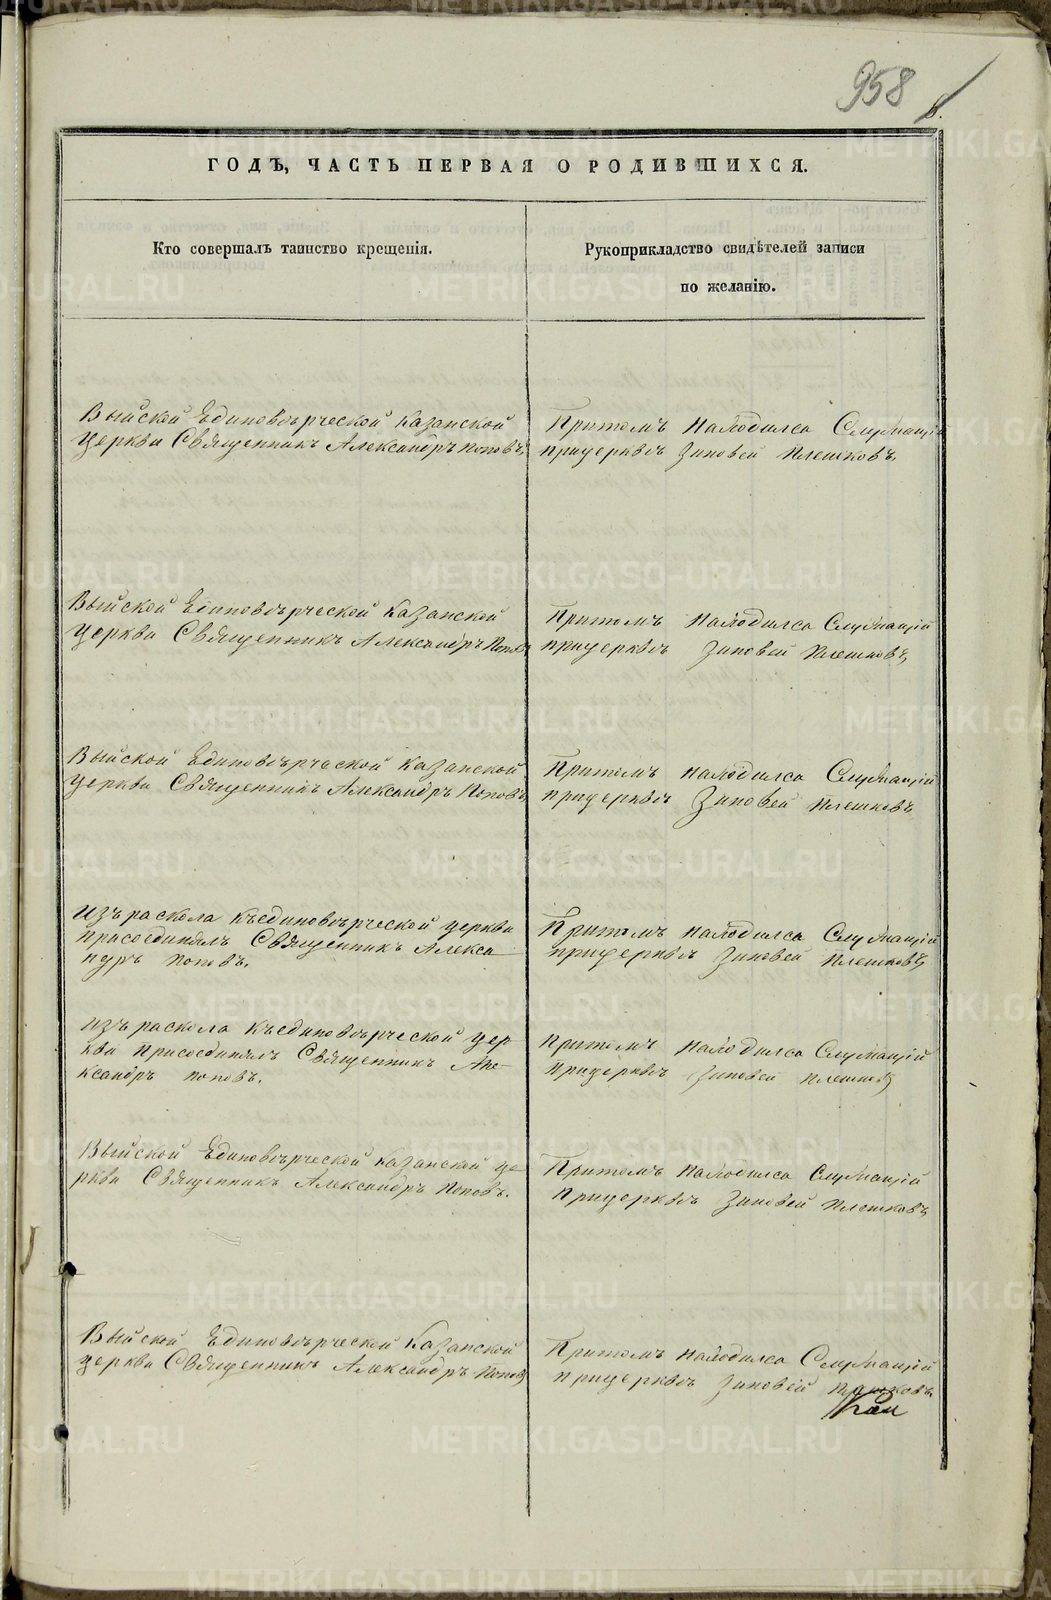 958
ГОДЪ, ЧАСТЬ ПЕРВАЯ О РОДИВШИХСЯ.
Кто совершалъ таинство крещенія.
Рукоприкладство свидѣтелей записи
по желанію.
Выйской Единовѣрческой Казанской
Церкви Священникъ Александръ Поповъ,
Притомъ находился Служащій
прицерквѣ Зиновей Плешковъ,
Выйской Единовѣрческой Казанской
Церкви Священникъ Александръ Поповъ
Притомъ находился Служащій
прицерквѣ Зиновей Плешковъ,
Выйской Единовѣрческой Казанской
Церкви Священникъ Александръ Поповъ
Притомъ находился Служащій
прицерквѣ Зиновей Плешковъ
Изъ раскола къединовѣрческой церкви
присоединялъ Священникъ Алекса
ндръ Поповъ.
Притомъ находился Служащій
прицерквѣ Зиновей Плешковъ
Изъ раскола къединовѣрческой цер
кви Присоединялъ Священникъ Але
ксандръ Поповъ.
Притомъ находился Служащій
Прицерквѣ Зиновей Плешковъ
Выйской Единовѣрческой Казанской це
ркви Священникъ Александръ Поповъ.
Притомъ находился Служащій
Прицерквѣ Зиновей Плешковъ
Выйской Единовѣрческой Казанской
Церкви Священникъ Александръ Поповъ
Притомъ находился Служащій
прицерквѣ Зиновей Плешковъ.
METRIKI.GASO-URAL.RU